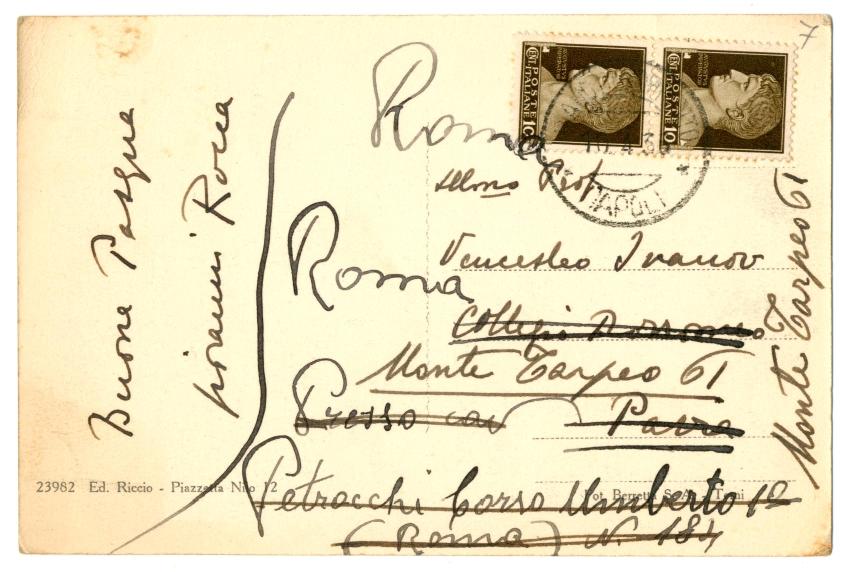 7
Buone Pasqua
Giovanni Rossa
POSTE ITALIANE
CENT 10
POSTE ITALIANE
CENT 10
NAPOLI
Roma
Prof.
Venceslao Ivanov
Roma
Collegio Borromeo
Monte Tarpeo 61
Presso
Pavia
Petrocchi Corso Umberto 1º
(Roma) N. 184
Monte Tarpeo 61
23982 Ed. Riccio - Piazzetta Nilo 12
Fot. Berretta S. A. - Terni